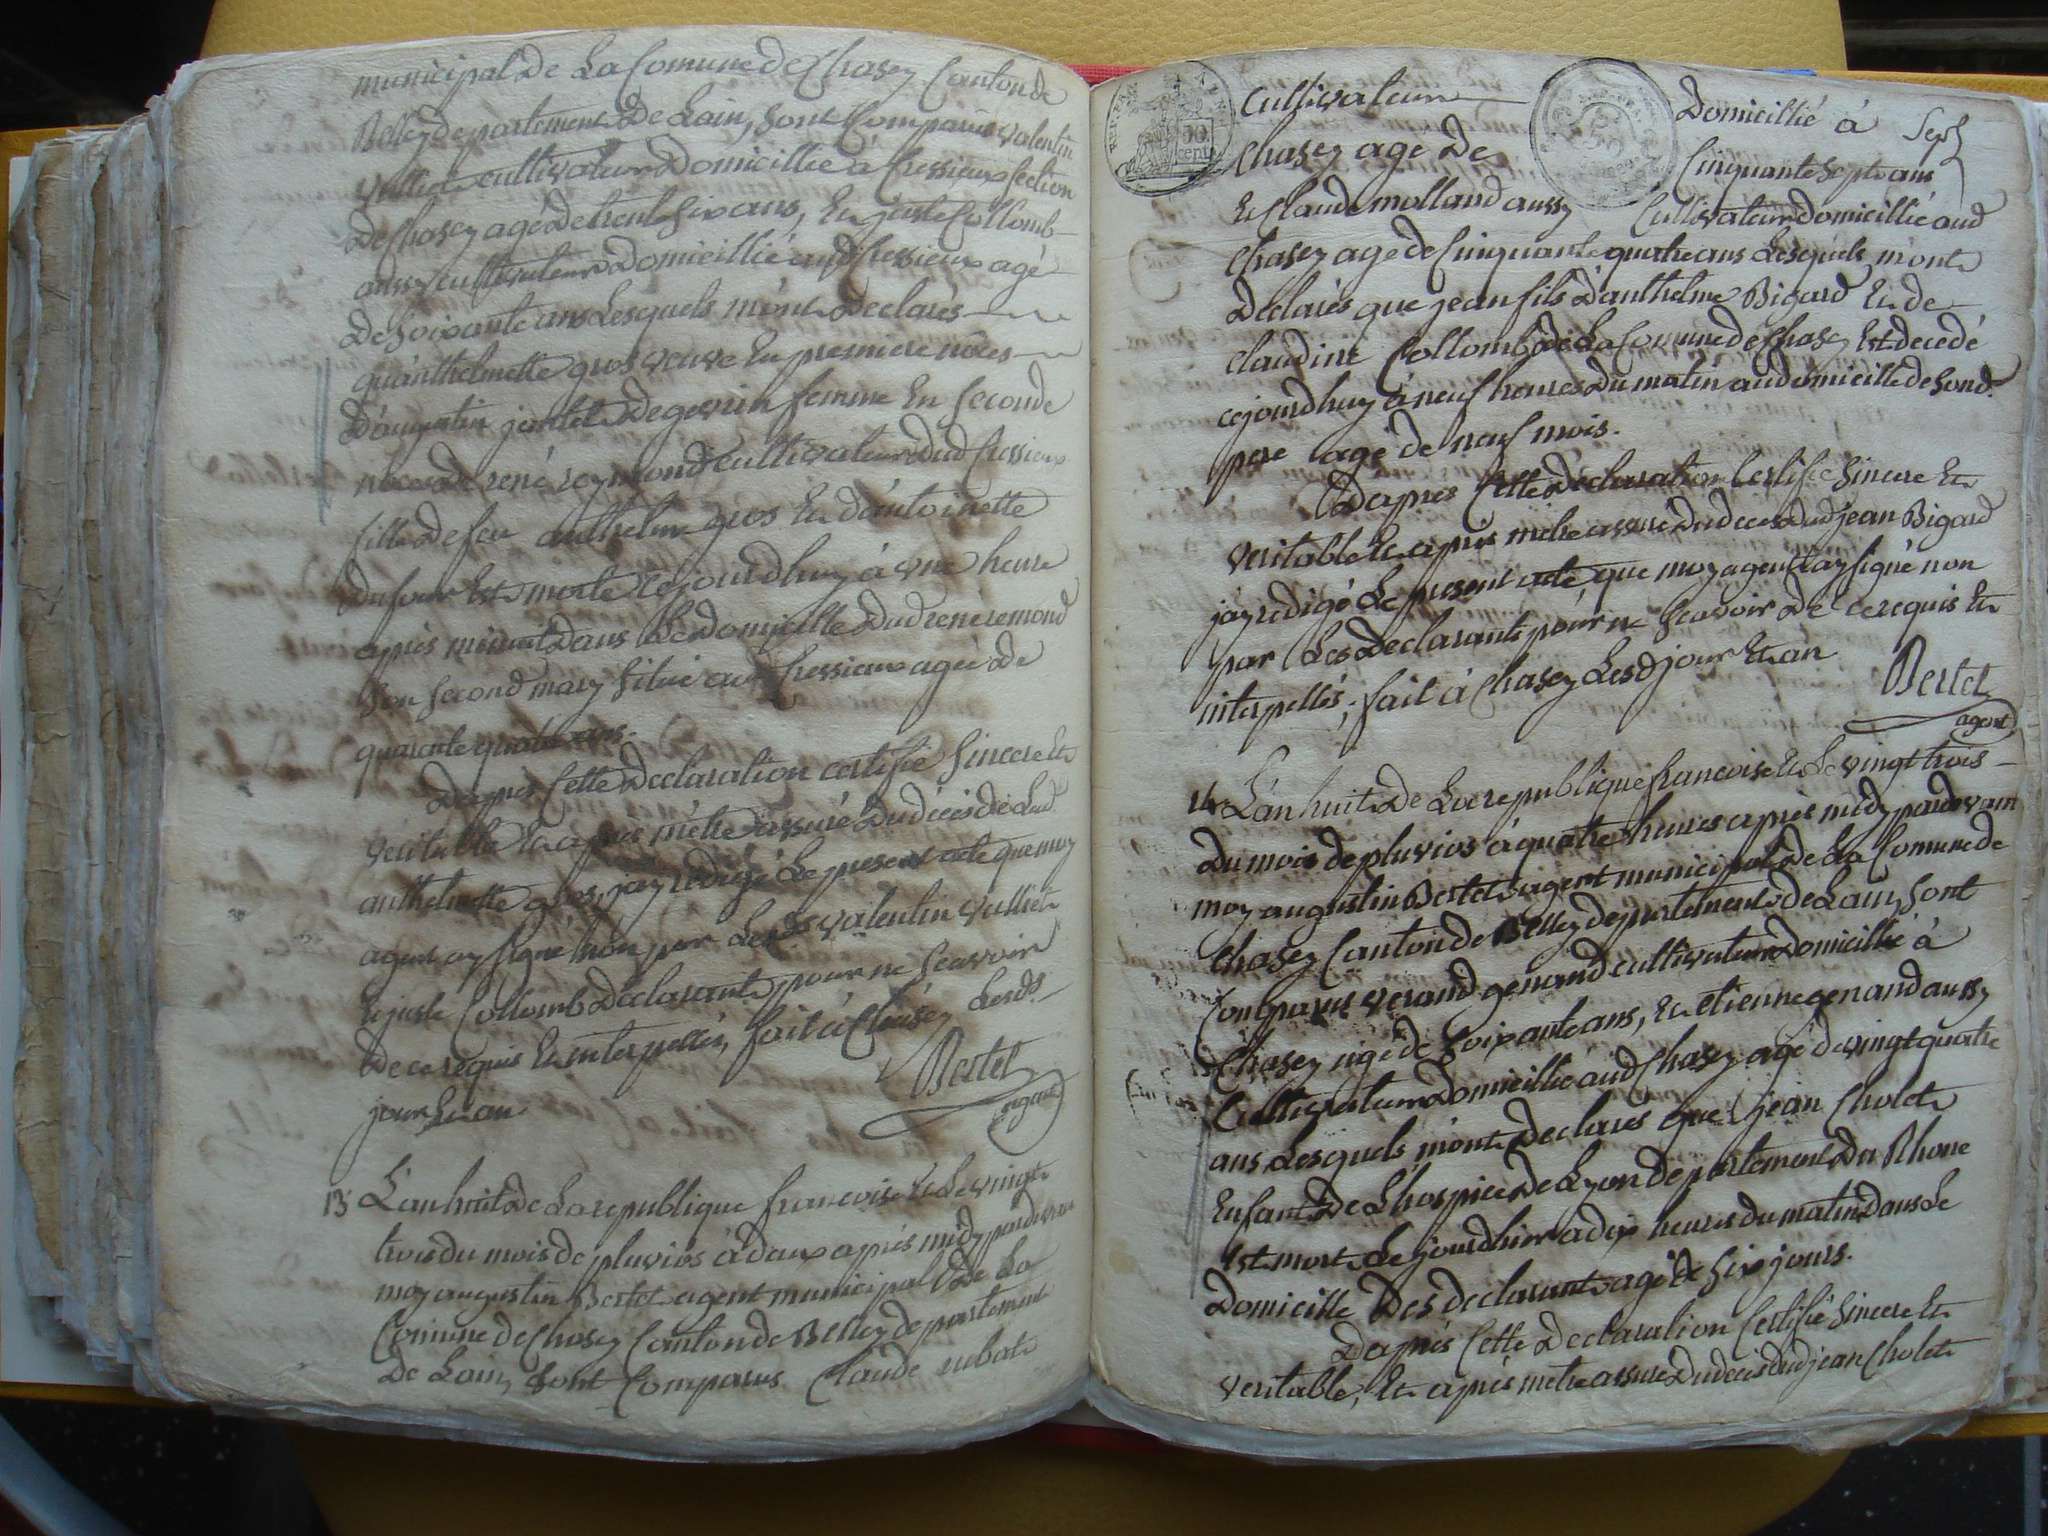 municipal de La Comune de Chasey Canton de
Belley departement de Lain, sont Comparus valentin
vulliet cultivateur domicillié à Cressieux section
de Chasey agé de trente six ans, Et juste Collomb
aussy cultivateur domicillié aud Cressieux agé
de soixante ans Lesquels m'ont declarés
qu'anthelmette gros veuve En premiere nôces
D'augustin jantet de gevrin femme En seconde
nôces de rené reymond cultivateur dud Cressieux
fille de feu anthelme gros Et d'antoinette
dufour Est morte cejourdhuy à une heure
après minuit dans Le domicille dud rené remond
son second mary situé aud Cressieux agée de
quarente quatre ans.
Dapres Cette declaration certifié sincere Et
veritable Et après m'être assuré du décès de Lad
anthelmette gros, jay redigé Le present acte que moy
agent ay signé non par Lesds valentin vulliet
Et juste Collomb declarants pour ne sçavoir
de ce requis Et interpellés, fait à Chasey Lesds
jour Et an
Bertet
agent
13 L'an huit de La republique francoise Et Le vingt
trois du mois de pluvios à deux après midy pardevant
moy augustin Bertet agent municipal de La
Comune de Chasey Canton de Belley departement
de Lain, sont Comparus Claude rubat
REP. FRA
50
cent
Cultivateur Domicillié à
Sept
Chasey agé de Cinquante sept ans
Et Claude mollard aussy Cultivateur domicillié aud
Chasey agé de Cinquante quatre ans Lesquels m'ont
declarés que jean fils d'anthelme Bigard Et de
claudine Collomb de La Comune de Chasey Est decedé
cejourdhuy à neuf heures du matin au domicille de sond
pere agé de neuf mois.
Dapres Cette declaration Certifié sincere Et
veritable Et après m'être assuré du deces dud jean Bigard
jay redigé Le present acte, que moy agent ay signé non
par Les declarants pour ne sçavoir de ce requis Et
interpellés, fait à Chasey Lesd jour Et an
Bertet
agent
14 L'an huit de La republique francoise Et Le vingt trois
du mois de pluvios à quatre heures après midy pardevant
moy augustin Bertet agent municipal de La Comune de
Chasey Canton de Belley departement de Lain, sont
Comparus verand genand cultivateur domicillié à
Chasey agé de soixante ans, Et etienne genand aussy
Cultivateur domicillié aud Chasey agé de vingt quatre
ans Lesquels m'ont declarés que jean Cholet
Enfant de L'hospice de Lyon departement du Rhone
Est mort Le jourdhier a dix heures du matin dans Le
domicille des declarants agé de six jours.
Dapres Cette declaration Certifié sincere Et
veritable, Et après m'etre assuré du deces dud jean Cholet